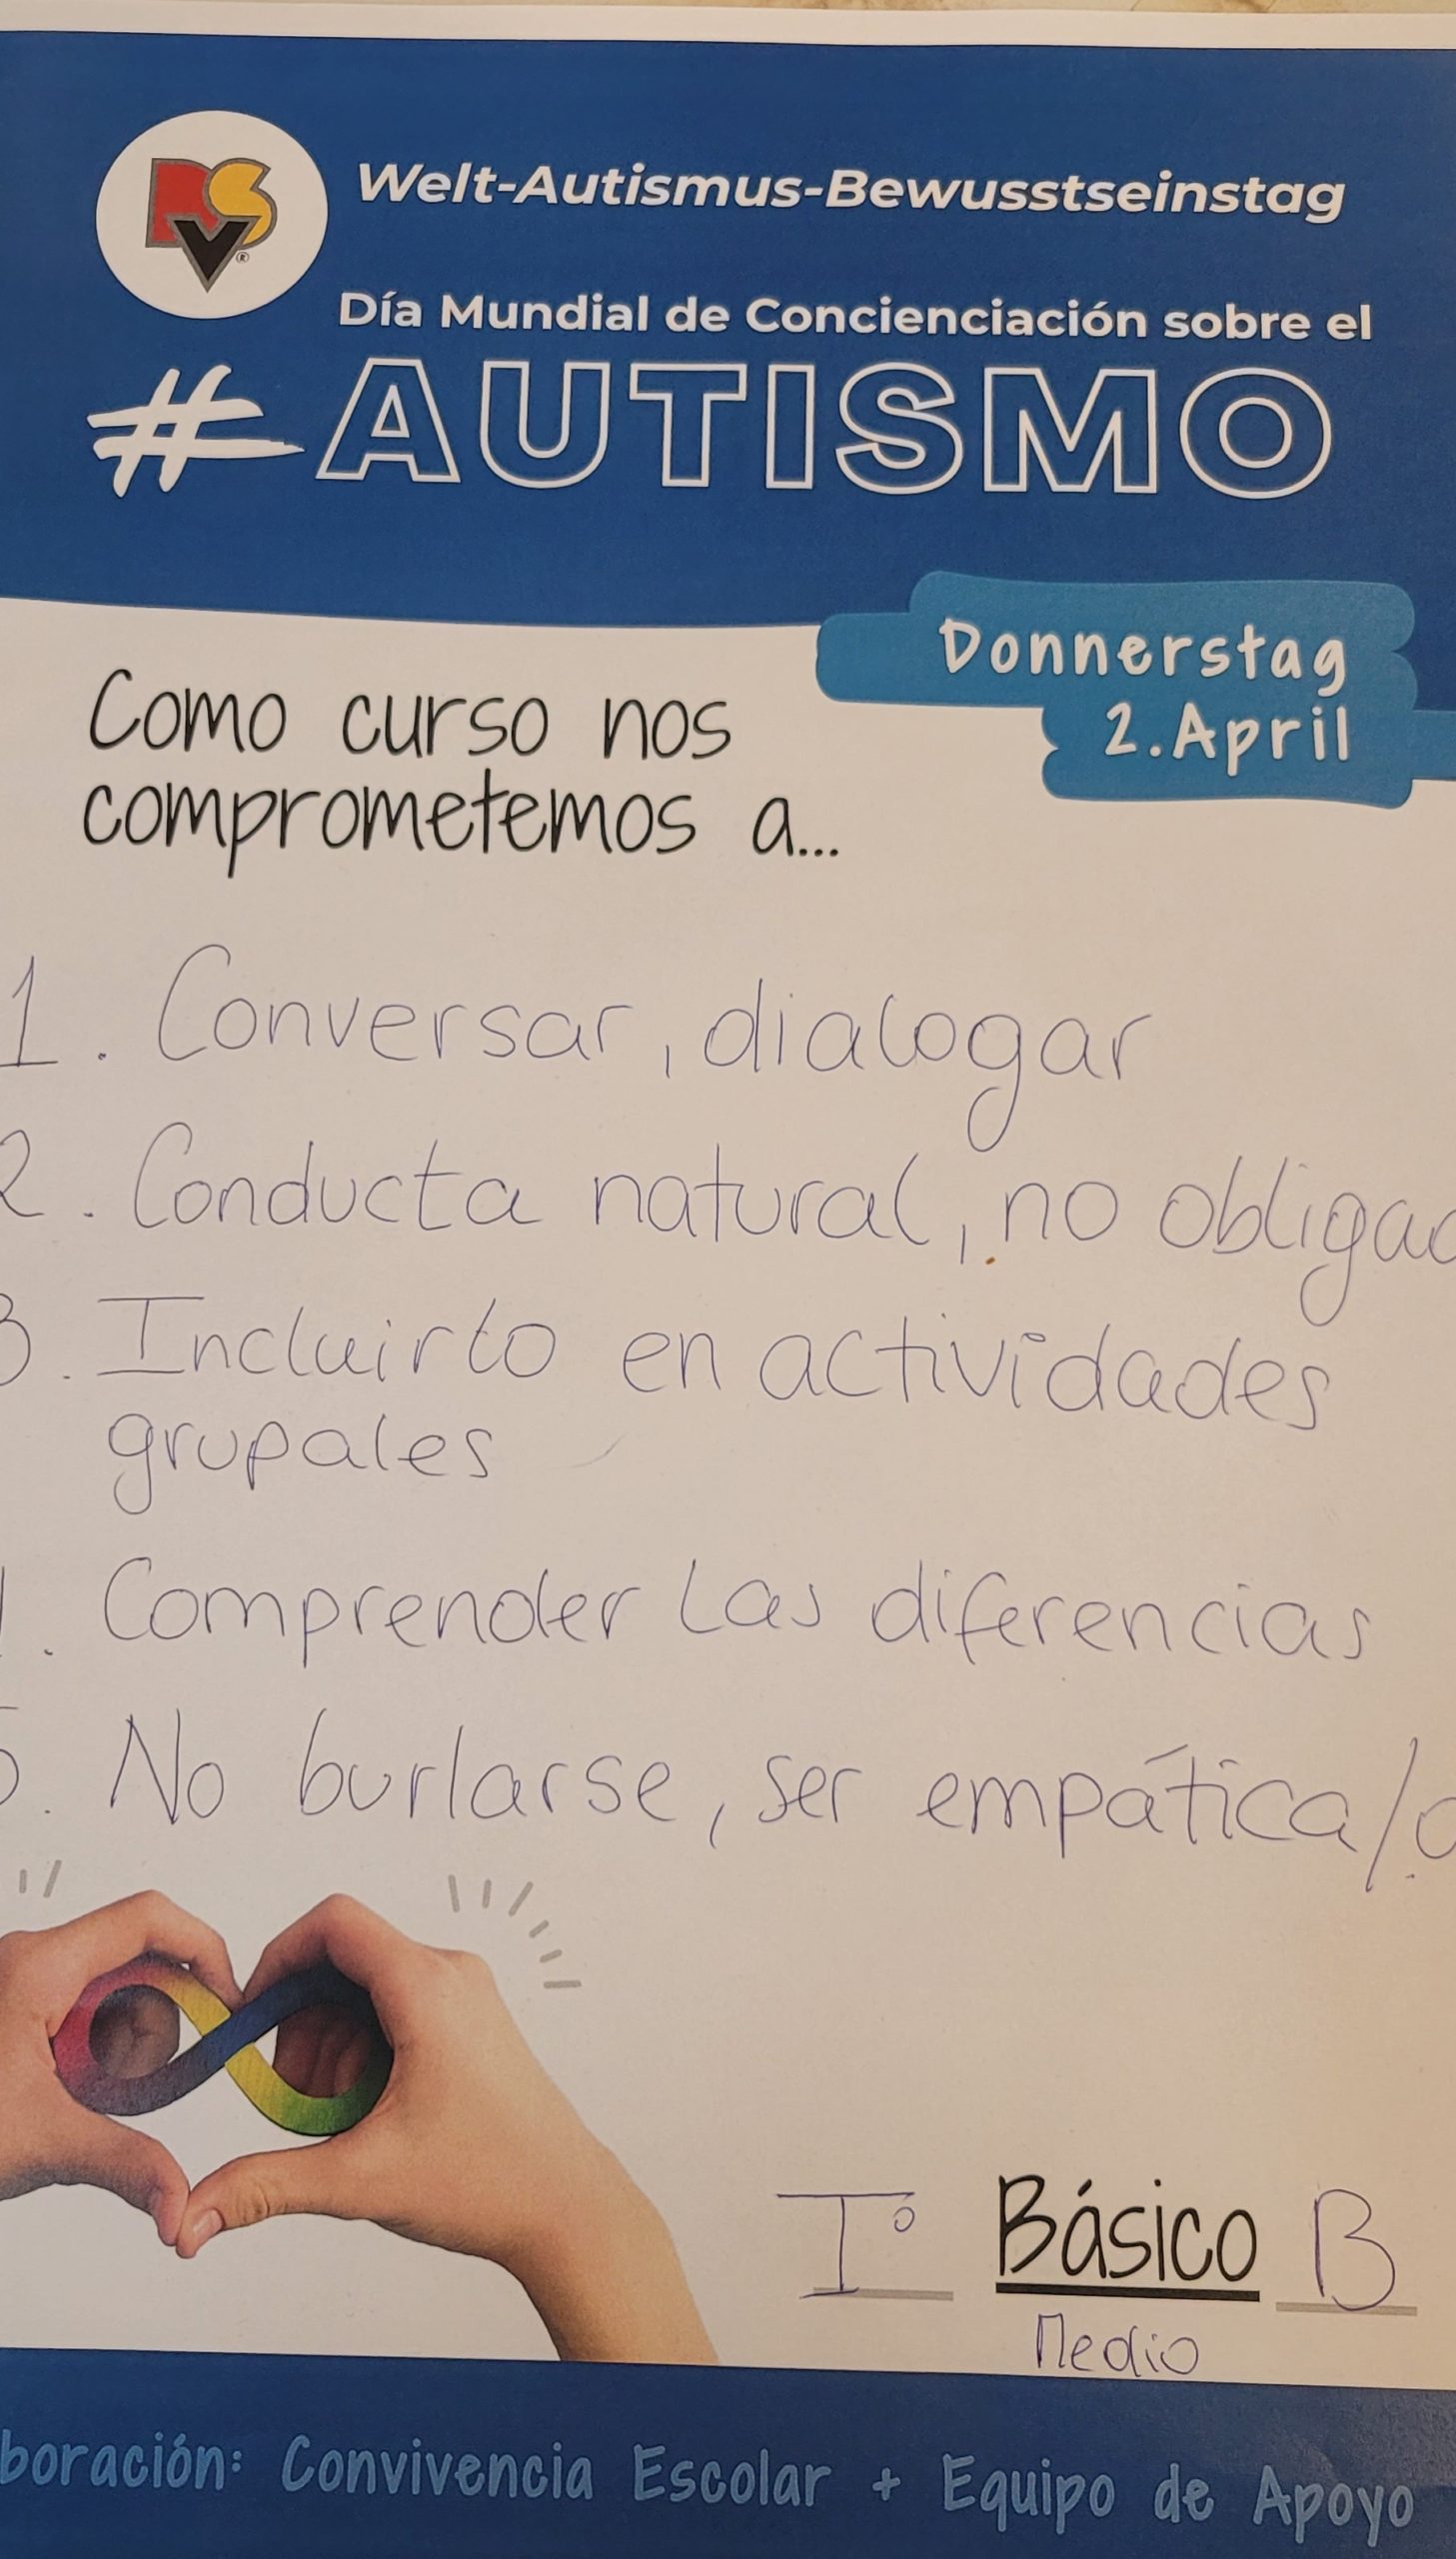 RSV®
Welt-Autismus-Bewusstseinstag
Día Mundial de Concienciación sobre el
#AUTISMO
Donnerstag
2.April
Como curso nos
comprometemos a...
1. Conversar, dialogar
2. Conducta natural, no
3. Incluirlo en actividades
grupales
4. Comprender las diferencias
5. No burlarse, ser empática/o
I° Básico B
Medio
Convivencia Escolar + Equipo de Apoyo